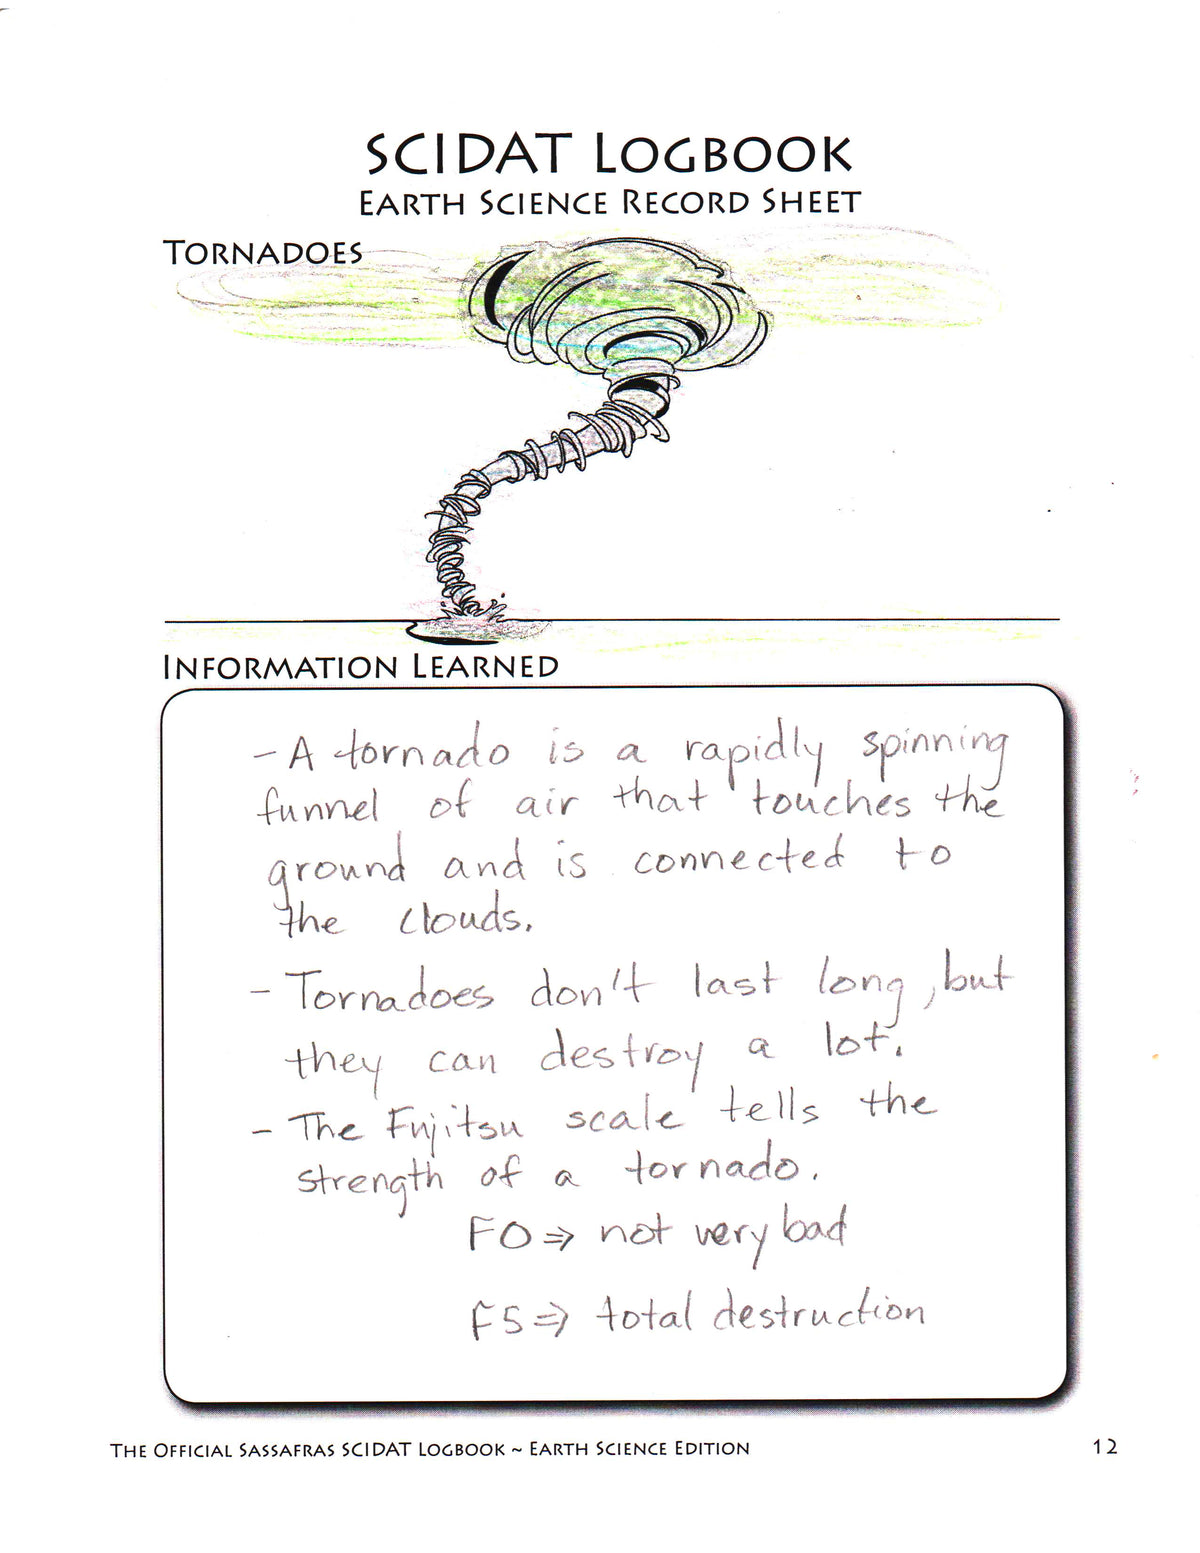 SCIDAT LOGBOOK
EARTH SCIENCE RECORD SHEET
TORNADOES
INFORMATION LEARNED
- A tornado is a rapidly spinning
funnel of air that touches the
ground and is connected to
the clouds.
- Tornadoes don't last long, but
they can destroy a lot.
- The Fujitsu scale tells the
strength of a tornado.
F0 ⇒ not very bad
F5 ⇒ total destruction
THE OFFICIAL SASSAFRAS SCIDAT LOGBOOK ~ EARTH SCIENCE EDITION 12